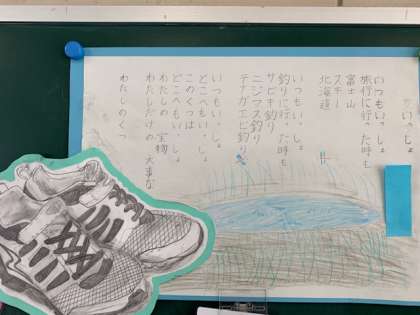 いっしょ
いつもいっしょ
旅行に行った時も
富士山
スキー
北海道
いつもいっしょ
釣りに行った時も
サビキ釣り
ニジマス釣り
テナガエビ釣り
いつもいっしょ
どこへもいっしょ
このくつは
どこへもいっしょ
わたしの 宝物
わたしだけの 大事な
わたしのくつ